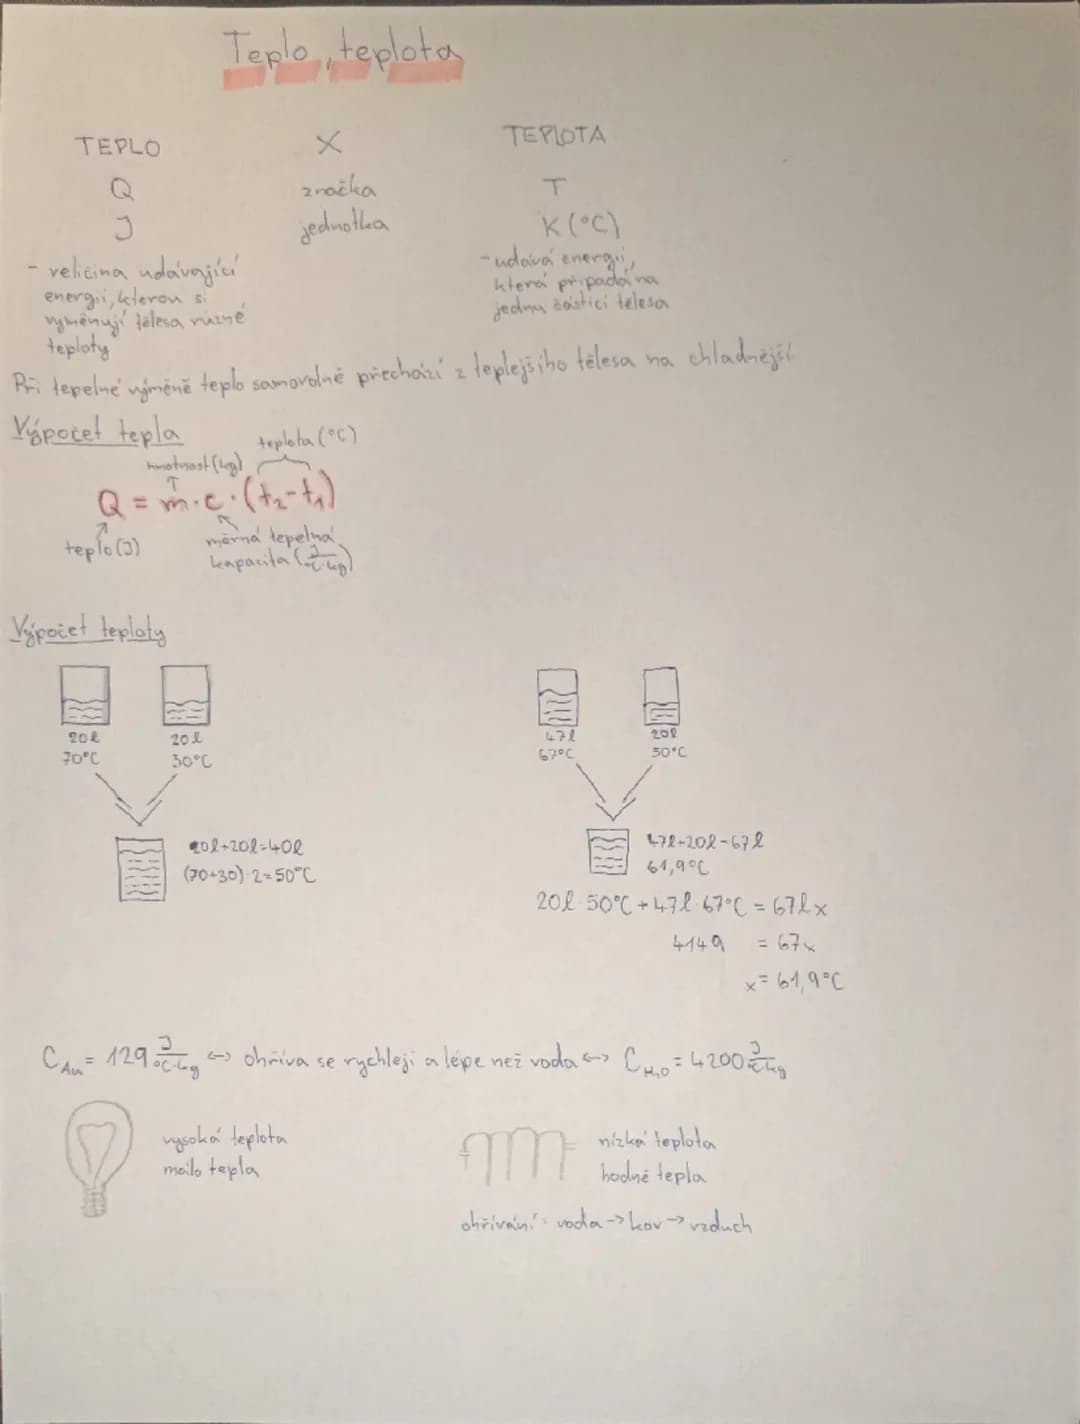 Teplo, teplota
TEPLO X TEPLOTA
Q značka T
J jednotka K (°C)
- veličina udávající
energii, kterou si
vyměňují tělesa různé
teploty
- udává energii,
která připadá na
jednu částici tělesa
Při tepelné výměně teplo samovolně přechází z teplejšího tělesa na chladnější
Výpočet tepla
teplota (°C)
hmotnost (kg)
Q = m·c·(t₂-t₁)
teplo (J)
měrná tepelná
kapacita (J/°C·kg)
Výpočet teploty
20l 20l
70°C 30°C
20l+20l=40l
(70+30):2=50°C
47l 20l
67°C 50°C
47l+20l=67l
61,9°C
20l·50°C+47l·67°C=67l x
4149 = 67x
x=61,9°C
C Au = 129 J/°C·kg <-> ohřívá se rychleji a lépe než voda <-> C H₂O = 4200 J/°C·kg
vysoká teplota
málo tepla
nízká teplota
hodně tepla
ohřívání: voda -> kov -> vzduch